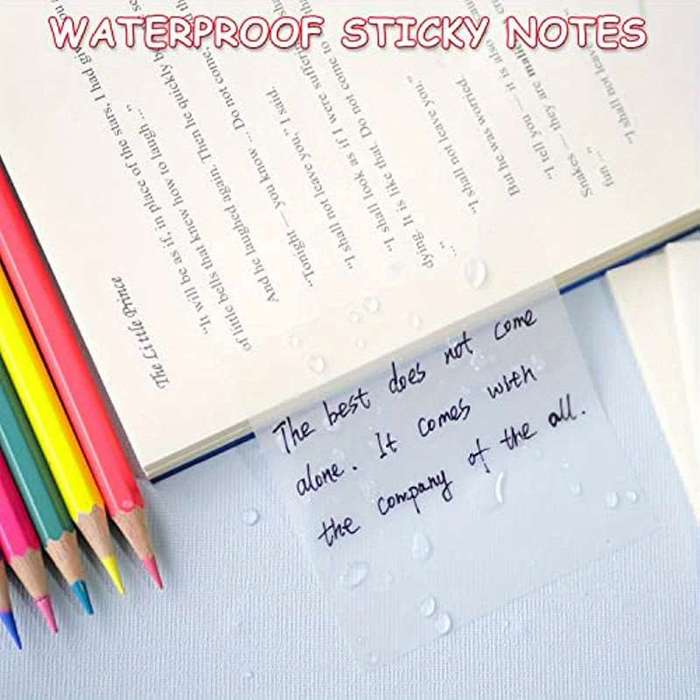 WATERPROOF STICKY NOTES
The Little Prince
"It will be as if, in place of the stars, I had
of little bells that knew how to laugh ..."
And he laughed again. Then he quickly
"Tonight — you know ... Do not come,
"I shall not leave you," I said.
"I shall look as if I were
dying. It is like that. Do not come to
..."
"I shall not leave you."
But he was worried.
"I tell you — it is also
Snakes — they are
fun ..."
"I shall not leave
The best does not come
alone. It comes with
the company of the all.